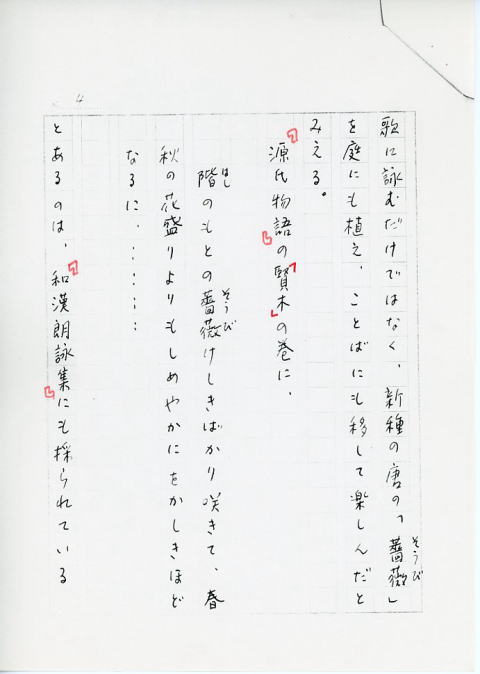 4
歌に詠むだけではなく、新種の唐の「薔薇」
そうび
を庭にも植え、ことばにも移して楽しんだと
みえる。
『源氏物語』の「賢木」の巻に、
階のもとの薔薇けしきばかり咲きて、春
はし
そうび
秋の花盛りよりもしめやかにをかしきほど
なるに、……
とあるのは、『和漢朗詠集』にも採られている